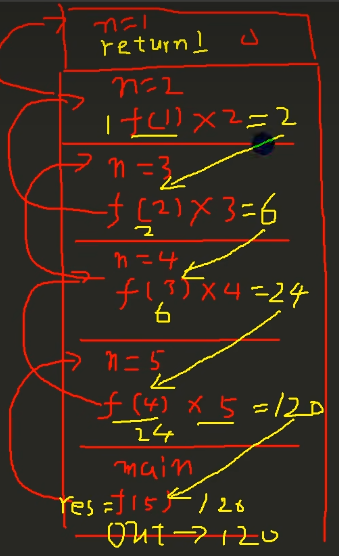 n=1
return 1
n=2
1 f(1) × 2 = 2
n=3
f(2) × 3 = 6
2
n=4
f(3) × 4 = 24
6
n=5
f(4) × 5 = 120
24
main
res = f(5) 120
out → 120